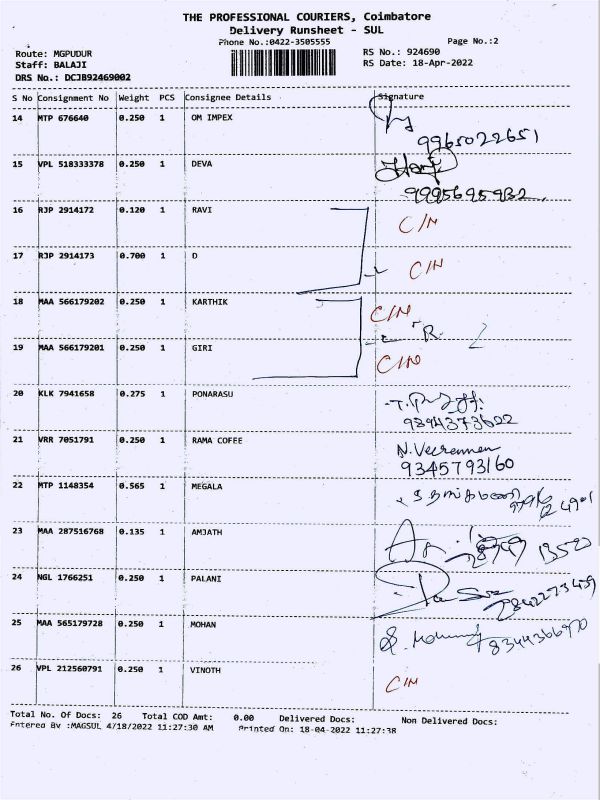 THE PROFESSIONAL COURIERS, Coimbatore
Delivery Runsheet - SUL
Phone No.:0422-3505555
Page No.:2
Route: MGPUDUR
RS No.: 924690
Staff: BALAJI
RS Date: 18-Apr-2022
DRS No.: DCJB92469002
S No Consignment No Weight PCS Consignee Details Signature
14 MTP 676640 0.250 1 OM IMPEX
9965022651
15 VPL 518333378 0.250 1 DEVA
9995695932
16 RJP 2914172 0.120 1 RAVI C/N
17 RJP 2914173 0.700 1 D C/N
18 MAA 566179202 0.250 1 KARTHIK C/N
R.
19 MAA 566179201 0.250 1 GIRI C/N
20 KLK 7941658 0.275 1 PONARASU
9894373622
21 VRR 7051791 0.250 1 RAMA COFEE
9345793160
22 MTP 1148354 0.565 1 MEGALA
23 MAA 287516768 0.135 1 AMJATH
13520
24 NGL 1766251 0.250 1 PALANI
25 MAA 565179728 0.250 1 MOHAN
8344366970
26 VPL 212560791 0.250 1 VINOTH C/N
Total No. Of Docs: 26 Total COD Amt: 0.00 Delivered Docs: Non Delivered Docs:
Entered By :MAGSUL 4/18/2022 11:27:30 AM Printed On: 18-04-2022 11:27:38